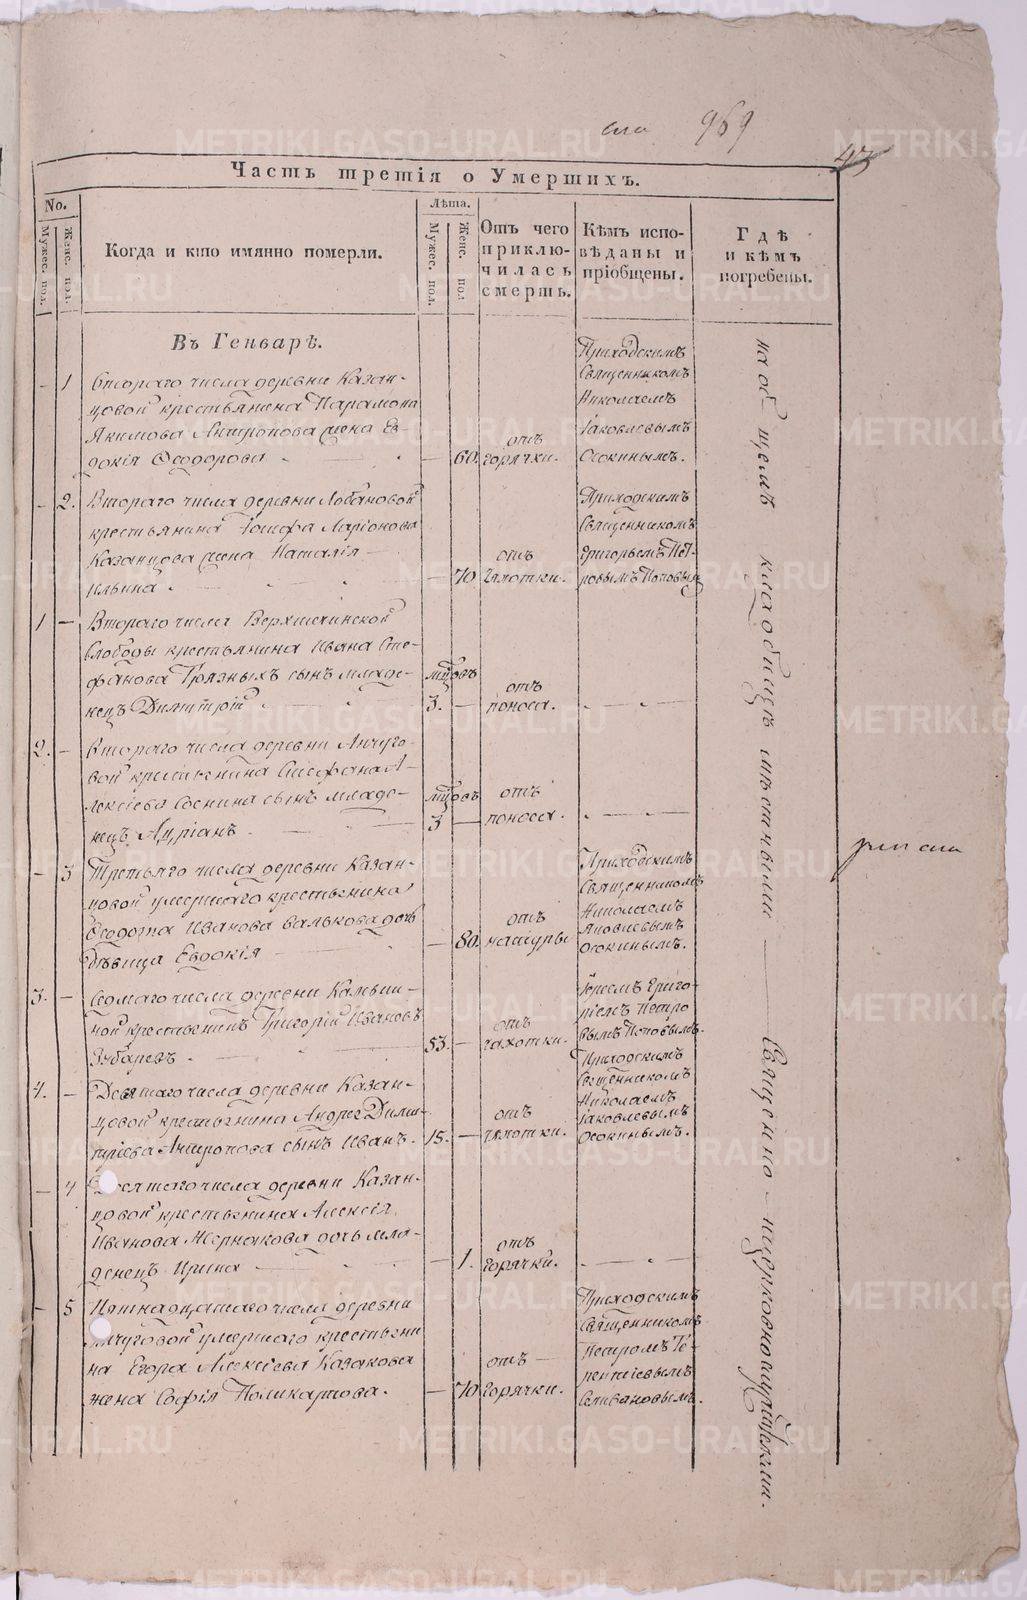 969
43
Часть третія о Умершихъ.
No.
Мужес. пол.
Женс. пол.
Когда и кто имянно померли.
Лѣта.
Мужес. пол.
Женс. пол
Отъ чего приключилась смерть.
Кѣмъ исповѣданы и пріобщены.
Гдѣ и кѣмъ погребены.
Въ Генварѣ.
– 1
втораго числа деревни Казан-
цовой крестьянина Парамона
Якимова Антропова жена Ев-
докія Ѳеодорова
– 60.
отъ
горячки.
Приходскимъ
Священникомъ
Николаемъ
Іаковлевымъ
Осокинымъ.
– 2.
Втораго числа деревни Лобановой
крестьянина Іосифа Ларіонова
Казанцова жена Наталія
Ильина.
– 70
отъ
чахотки.
Приходскимъ
Священникомъ
Григорьемъ Пет-
ровымъ Поповым
1 –
Втораго числа
Слободы крестьянина Ивана Сте-
фанова Грязныхъ сынъ младе-
нецъ Димитрій
мцовъ
3. –
отъ
поноса.
2. –
втораго числа деревни Анчуго-
вой крестьянина Стефана А-
лексіева Соснина сынъ младе-
нецъ Адріанъ.
мцовъ
3 –
отъ
поноса.
– 3
Третьяго числа деревни Казан-
цовой умершаго крестьянина
Ѳеодота Иванова Валькова дочь
дѣвица Евдокія
– 80.
отъ
натуры
Приходскимъ
Священникомъ
Николаемъ
Яковлевымъ
Осокинымъ.
3. –
Седмаго числа деревни
ной крестьянинъ Григорій Ивановъ
Зубаревъ.
53. –
отъ
чахотки.
Іереемъ Григо-
ріемъ Петро
вымъ Поповымъ.
4. –
Девятаго числа деревни Казан-
цовой крестьянина Андрея Дими-
тріева Антропова сынъ Иванъ.
15. –
отъ
чахотки.
Приходскимъ
Священникомъ
Николаемъ
Іаковлевымъ
Осокинымъ.
– 4
числа деревни Казан-
цовой крестьянина Алексія
Иванова Жернакова дочь мла-
денецъ Ирина
– 1.
отъ
горячки.
– 5
Пятнадцатаго числа деревни
Анчуговой умершаго крестьяни
на Егора Алексіева Казакова
жена Софія Поликарпова.
– 70
отъ
горячки.
Приходскимъ
Священникомъ
Петромъ Те-
рентіевымъ
Селивановымъ.
на об щемъ кладбищѣ
METRIKI.GASO-URAL.RU